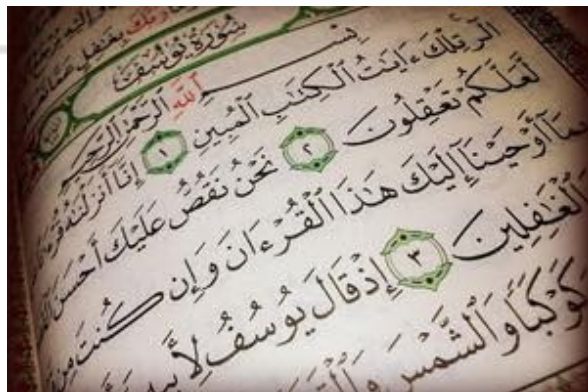 سُورَةُ يُوسُفَ
بِسْمِ اللَّهِ الرَّحْمَٰنِ الرَّحِيمِ
الٓر تِلْكَ ءَايَٰتُ ٱلْكِتَٰبِ ٱلْمُبِينِ ١ إِنَّآ أَنزَلْنَٰهُ
لَعَلَّكُمْ تَعْقِلُونَ ٢ نَحْنُ نَقُصُّ عَلَيْكَ أَحْسَنَ
أَوْحَيْنَآ إِلَيْكَ هَٰذَا ٱلْقُرْءَانَ وَإِن كُنتَ مِن
ٱلْغَٰفِلِينَ ٣ إِذْ قَالَ يُوسُفُ
كَوْكَبًا وَٱلشَّمْسَ